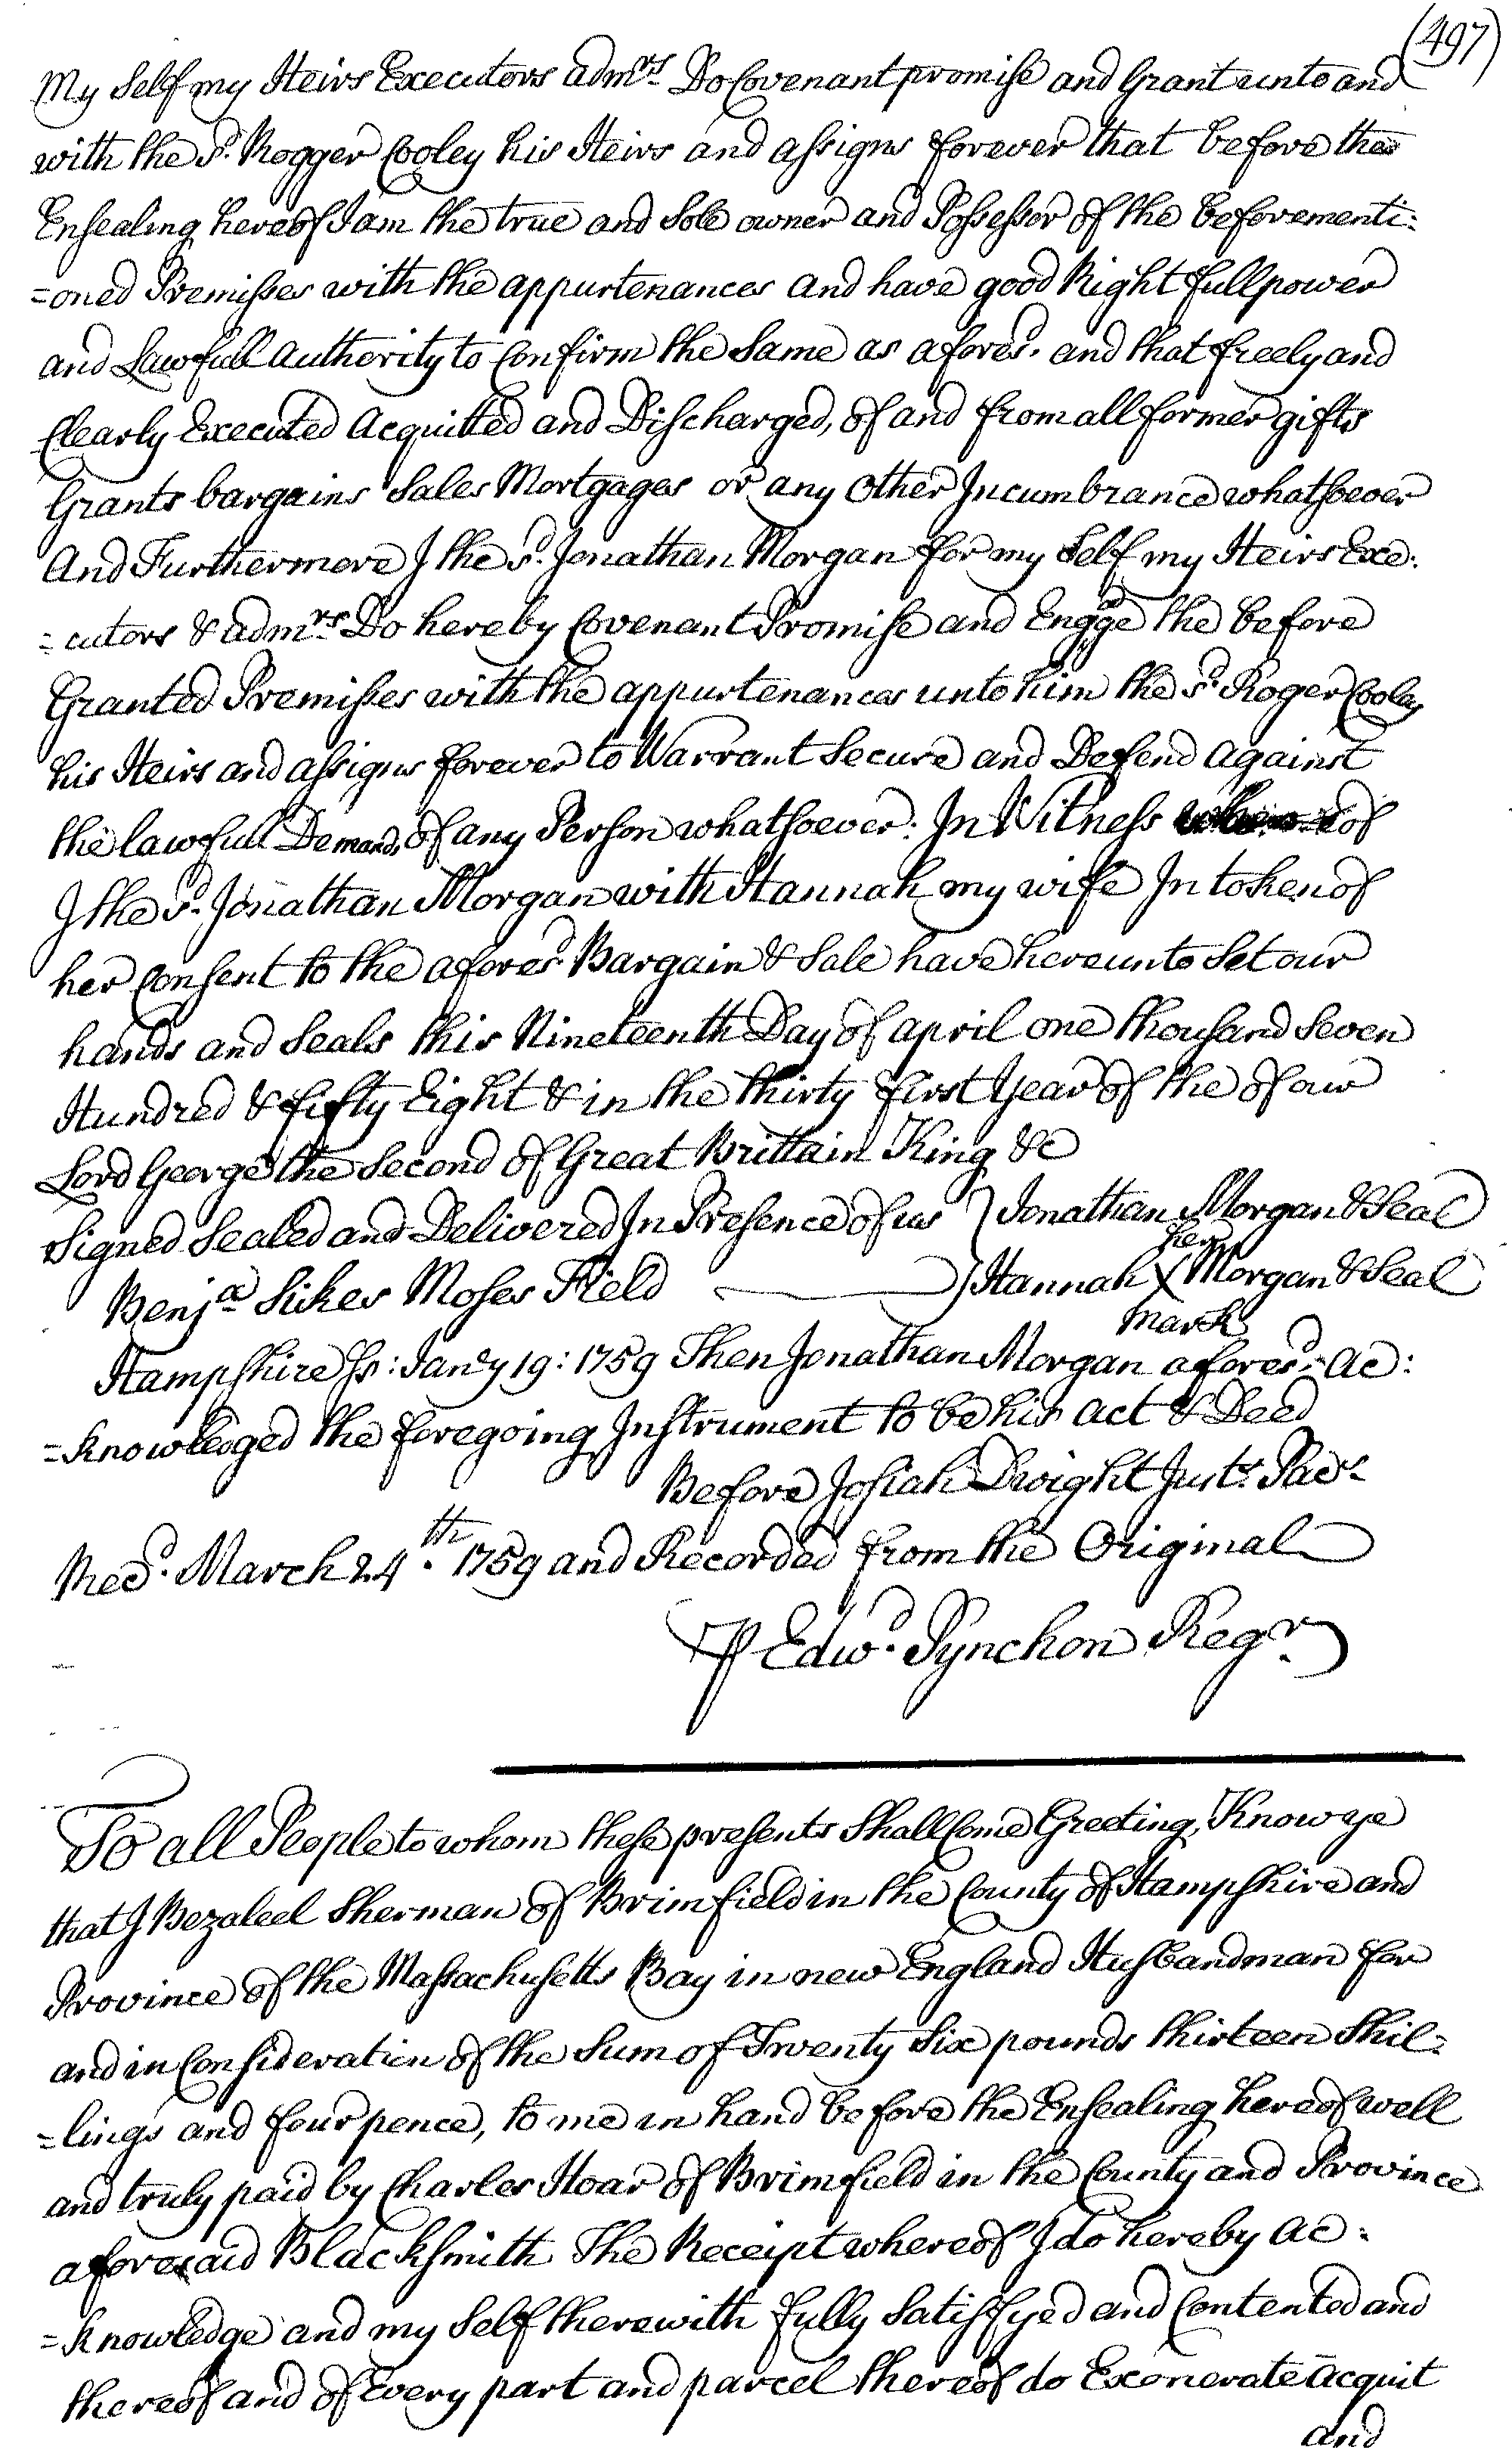 (497)
My Self my Heirs Executors admrs Do Covenant promise and Grant unto and
with the sd. Rogger Cooley his Heirs and assigns forever that before the
Ensealing hereof I am the true and Sole owner and Possessor of the beforementi:
=oned Premisses with the appurtenances and have good Right full power
and Lawfull authority to Confirm the Same as aforesd. and that freely and
Clearly Executed Acquitted and Discharged, of and from all former gifts
Grants bargains Sales Mortgages or any other Incumbrance whatsoever
And Furthermore I the sd. Jonathan Morgan for my Self my Heirs Exe:
=cutors & admrs Do hereby Covenant Promise and Engage the before
Granted Premisses with the appurtenances unto him the sd. Roger Cooley
his Heirs and assigns forever to Warrant Secure and Defend against
the lawfull Demands of any Person whatsoever. In Witness whereof
I the sd. Jonathan Morgan with Hannah my wife In token of
her Consent to the aforesd. Bargain & Sale have hereunto Set our
hands and Seals this Nineteenth Day of april one thousand Seven
Hundred & fifty Eight & in the thirty first Year of the of our
Lord George the Second of Great Brittain King &c
Signed Sealed and Delivered In Presence of us } Jonathan Morgan & Seal
her
Benja Sikes Moses Field } Hannah X Morgan & Seal
mark
Hampshire Ss: Jany 19: 1759 Then Jonathan Morgan aforesd. ac:
=knowledged the foregoing Instrument to be his act & Deed
Before Josiah Dwight Justs. Pacs.
Recd. March 24th. 1759 and Recorded from the Original
P Edwd. Pynchon Regr
To all People to whom these presents Shall Come Greeting, Know ye
that I Bezaleel Sherman of Brimfield in the County of Hampshire and
Province of the Massachusetts Bay in new England Husbandman for
and in Consideration of the Sum of Twenty Six pounds thirteen Shil=
=lings and four pence, to me in hand before the Ensealing hereof well
and truly paid by Charles Hoar of Brimfield in the County and Province
aforesaid Blacksmith The Receipt whereof I do hereby ac:
=knowledge and my Self therewith fully Satisfyed and Contented and
thereof and of Every part and parcel thereof do Exonerate acquit
and